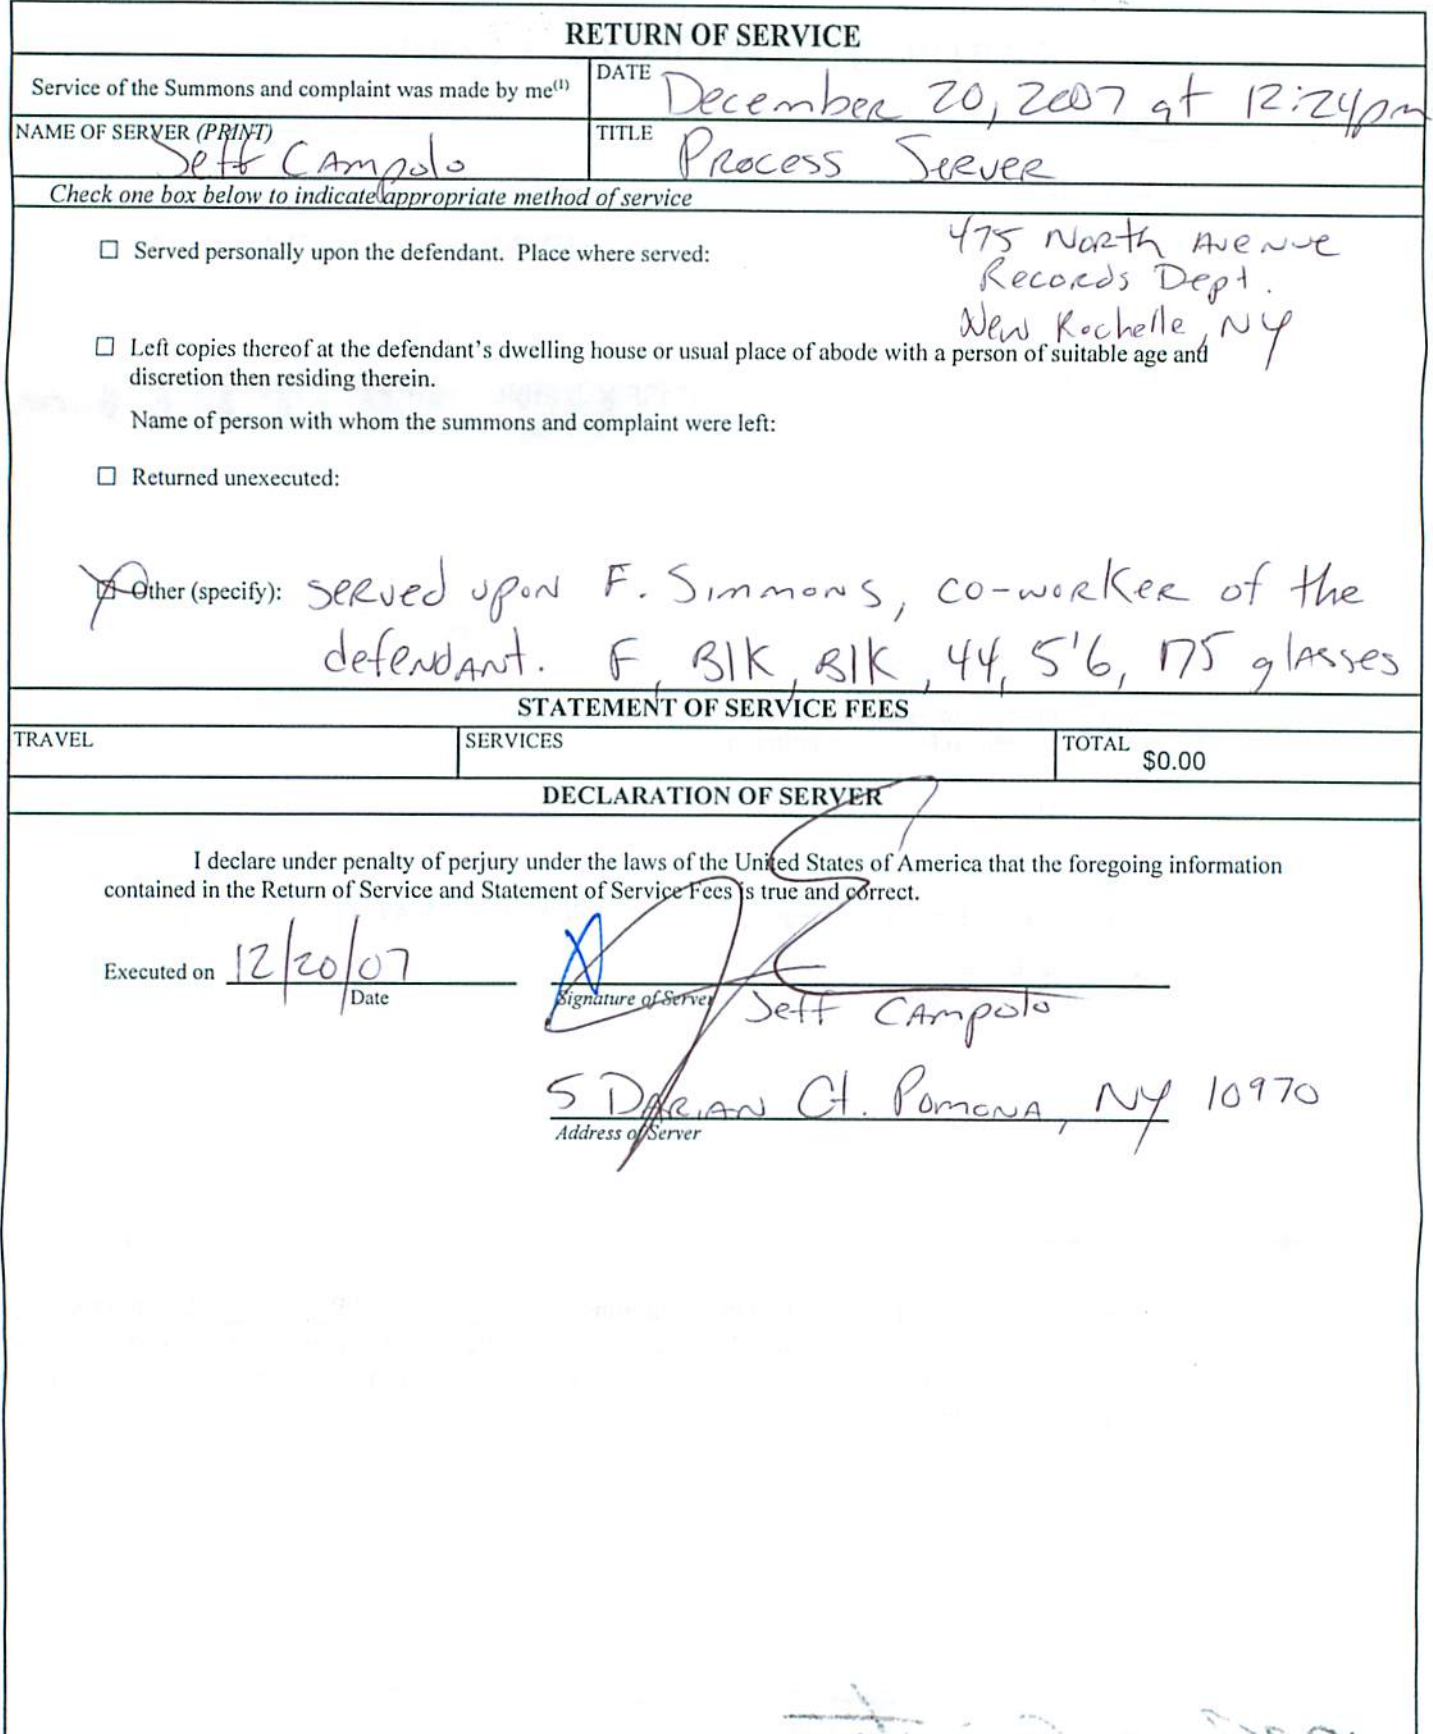 RETURN OF SERVICE
Service of the Summons and complaint was made by me(1)
DATE December 20, 2007 at 12:24pm
NAME OF SERVER (PRINT)
Jeff Campolo
TITLE Process Server
Check one box below to indicate appropriate method of service
☐ Served personally upon the defendant. Place where served:
475 North Avenue
Records Dept.
New Rochelle, NY
☐ Left copies thereof at the defendant's dwelling house or usual place of abode with a person of suitable age and
discretion then residing therein.
Name of person with whom the summons and complaint were left:
☐ Returned unexecuted:
☒ Other (specify): served upon F. Simmons, co-worker of the
defendant. F, Blk, Blk, 44, 5'6, 175 glasses
STATEMENT OF SERVICE FEES
TRAVEL
SERVICES
TOTAL $0.00
DECLARATION OF SERVER
I declare under penalty of perjury under the laws of the United States of America that the foregoing information
contained in the Return of Service and Statement of Service Fees is true and correct.
Executed on 12/20/07
Date
Signature of Server
Jeff Campolo
5 Darian Ct. Pomona, NY 10970
Address of Server